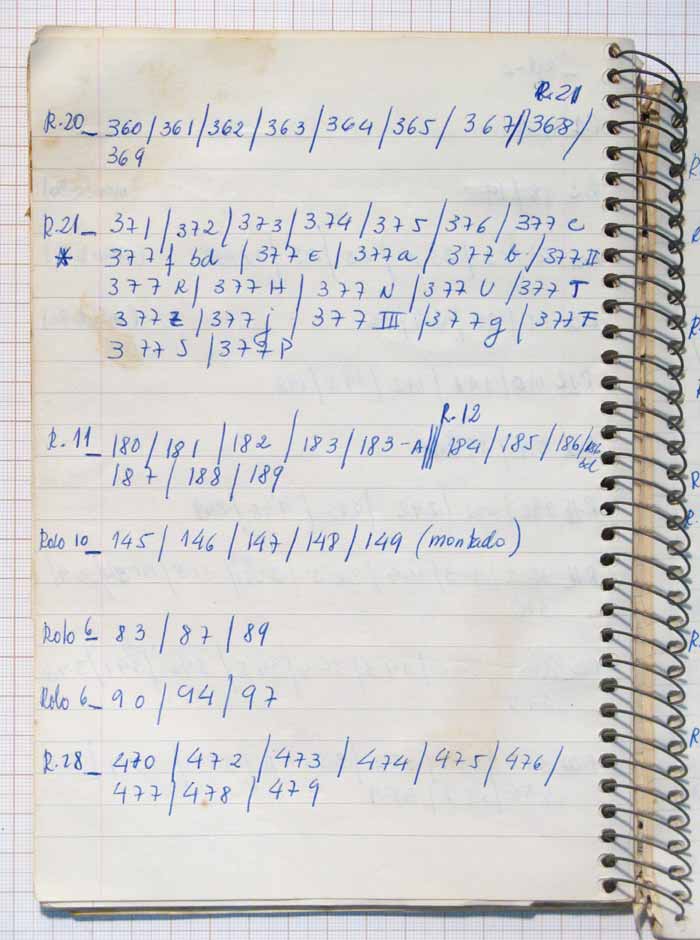 R.21
R.20_ 360/361/362/363/364/365/367//368/
369
R.21_ 371/372/373/374/375/376/377c
* 377f bd/377E/377a/377b/377II
377R/377H/377N/377U/377T
377z/377j/377III/377g/377F
377S/377P
R.12
R.11_ 180/181/182/183/183-A///184/185/186/186 bd
187/188/189
Rolo 10_ 145/146/147/148/149 (montado)
Rolo 6_ 83/87/89
Rolo 6_ 90/94/97
R.28_ 470/472/473/474/475/476/
477/478/479